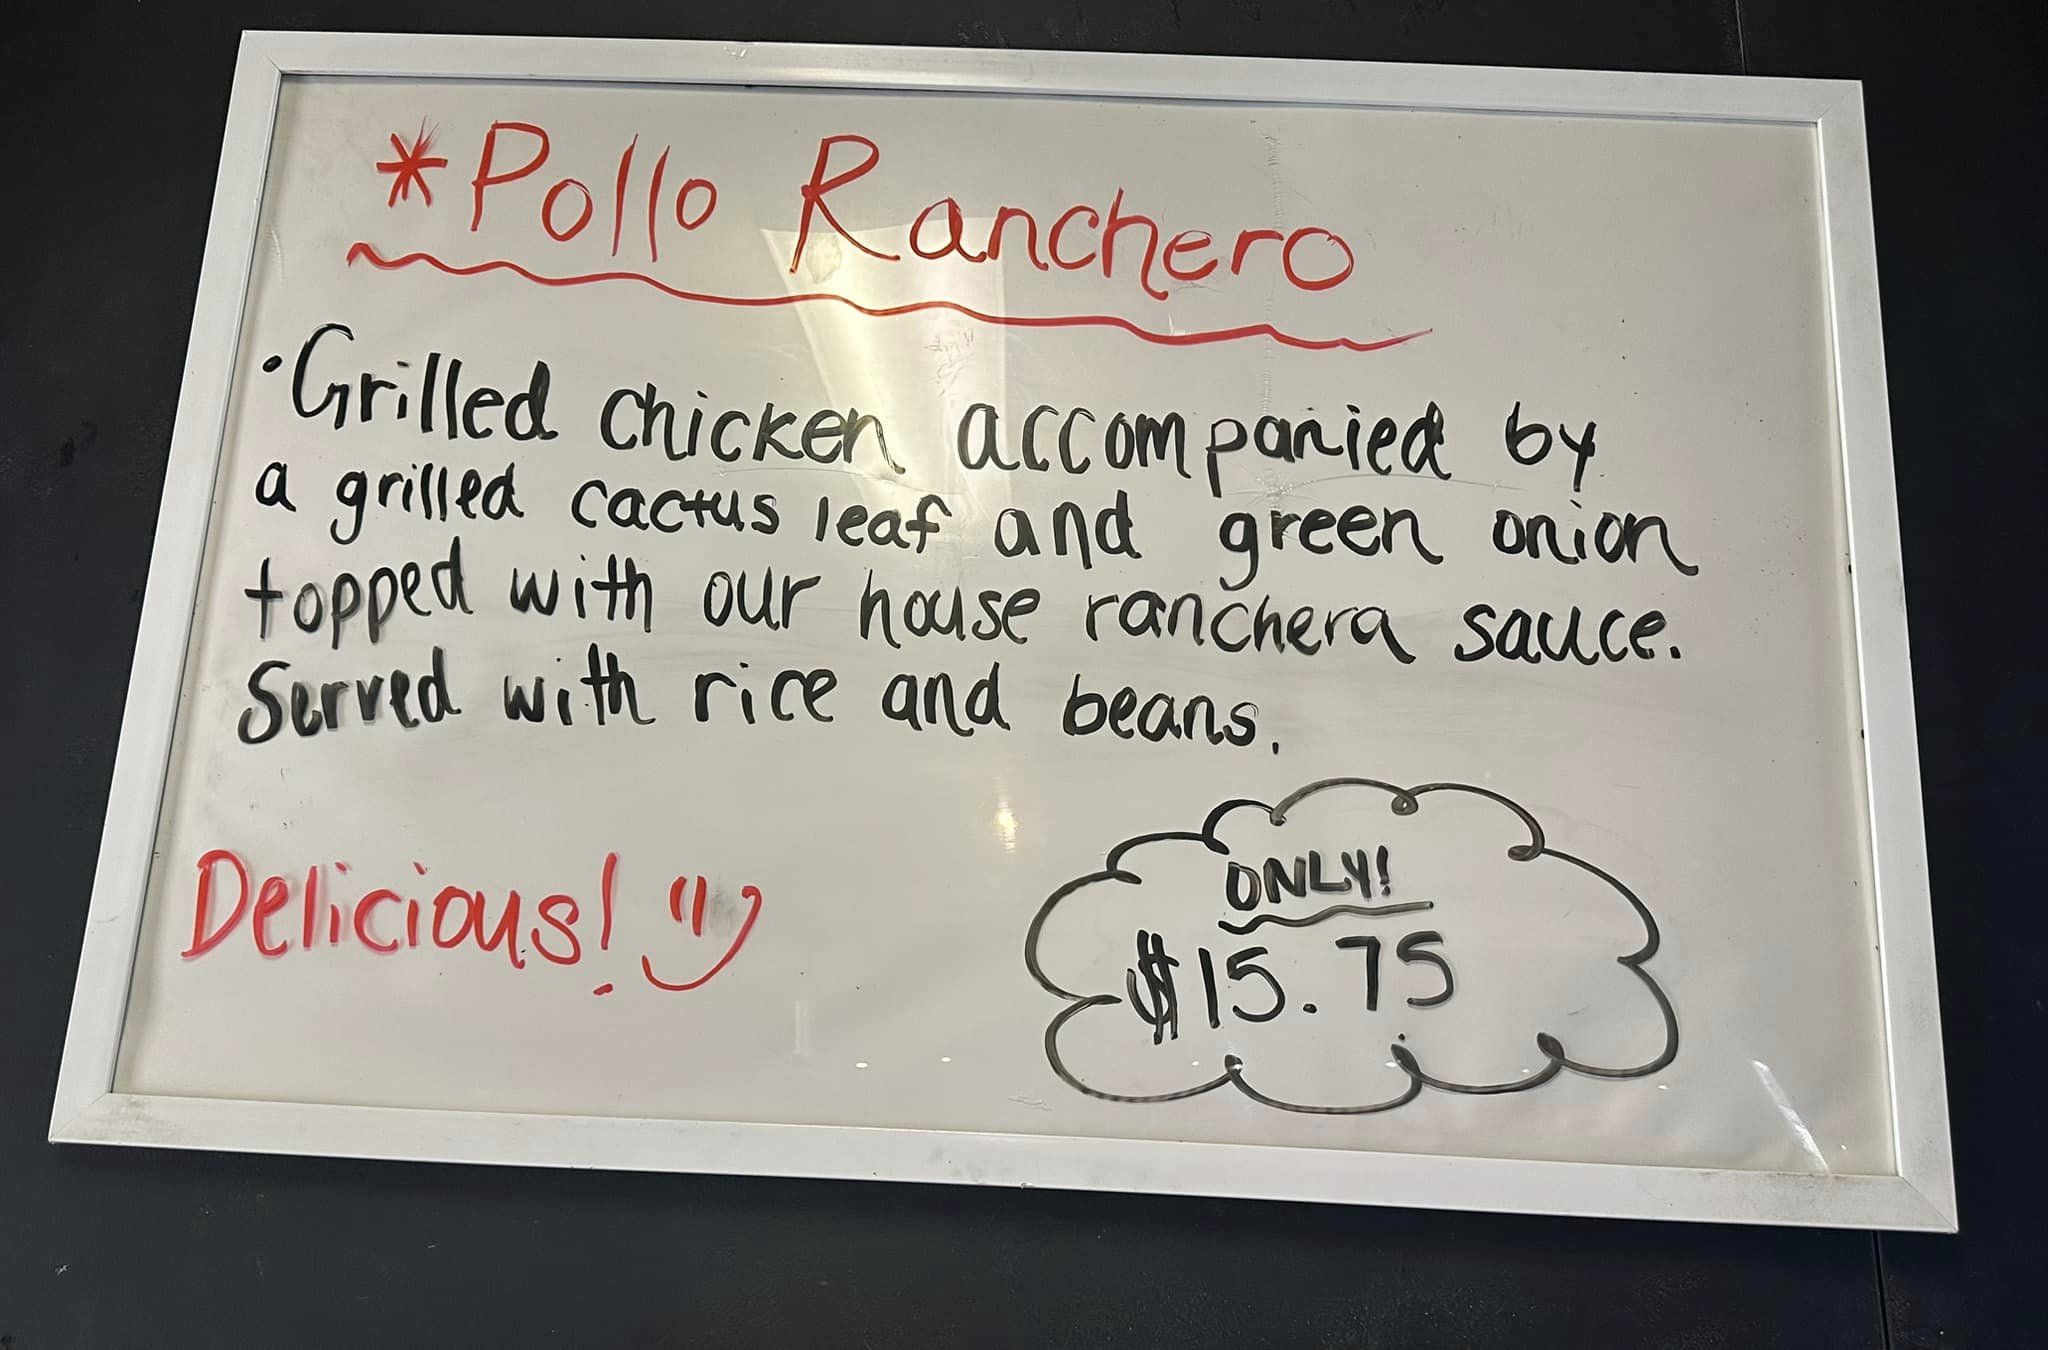 *Pollo Ranchero
·Grilled chicken accompanied by
a grilled cactus leaf and green onion
topped with our house ranchera sauce.
Served with rice and beans.
Delicious!
ONLY!
$15.75